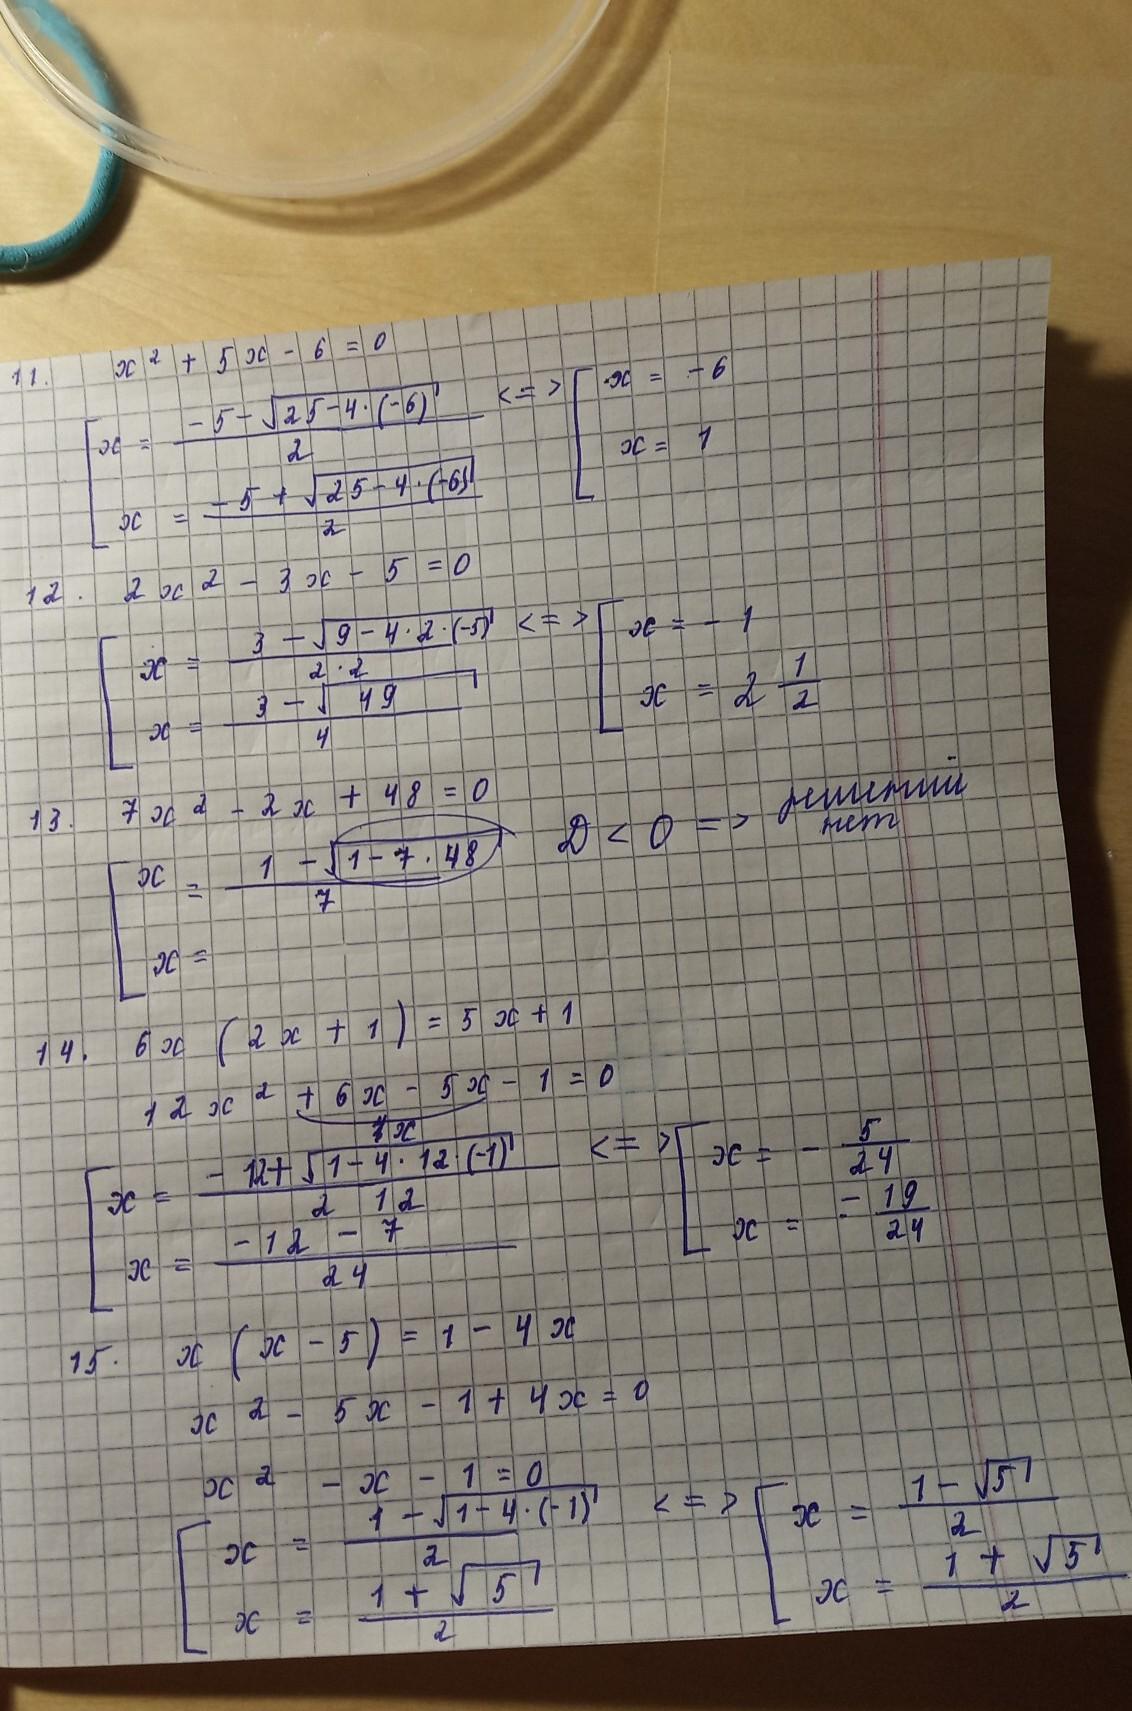 11. x² + 5x - 6 = 0
x = (-5 - √(25 - 4·(-6)))/2 <=> x = -6
x = (-5 + √(25 - 4·(-6)))/2 x = 1
12. 2x² - 3x - 5 = 0
x = (3 - √(9 - 4·2·(-5)))/(2·2) <=> x = -1
x = (3 - √49)/4 x = 2 1/2
13. 7x² - 2x + 48 = 0
x = (1 - √(1 - 7·48))/7 D < 0 => решений нет
x =
14. 6x (2x + 1) = 5x + 1
12x² + 6x - 5x - 1 = 0
1x
x = (-12 + √(1 - 4·12·(-1)))/(2 12) <=> x = - 5/24
x = (-12 - 7)/24 x = - 19/24
15. x (x - 5) = 1 - 4x
x² - 5x - 1 + 4x = 0
x² - x - 1 = 0
x = (1 - √(1 - 4·(-1)))/2 <=> x = (1 - √5)/2
x = (1 + √5)/2 x = (1 + √5)/2